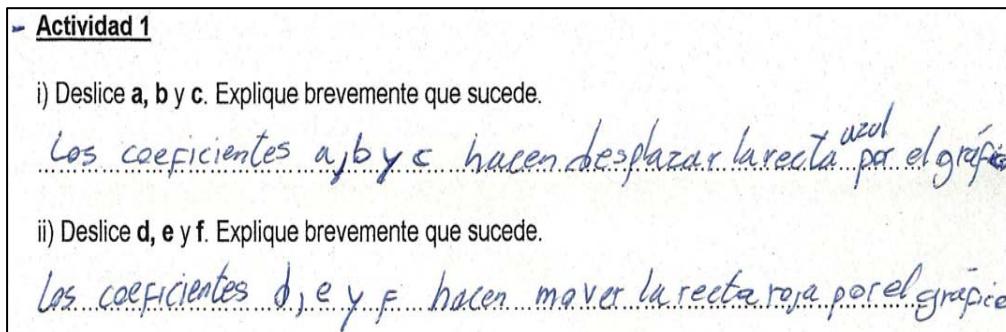 - Actividad 1
i) Deslice a, b y c. Explique brevemente que sucede.
Los coeficientes a, b y c hacen desplazar la recta azul por el gráfico
ii) Deslice d, e y f. Explique brevemente que sucede.
Los coeficientes d, e y f hacen mover la recta roja por el gráfico